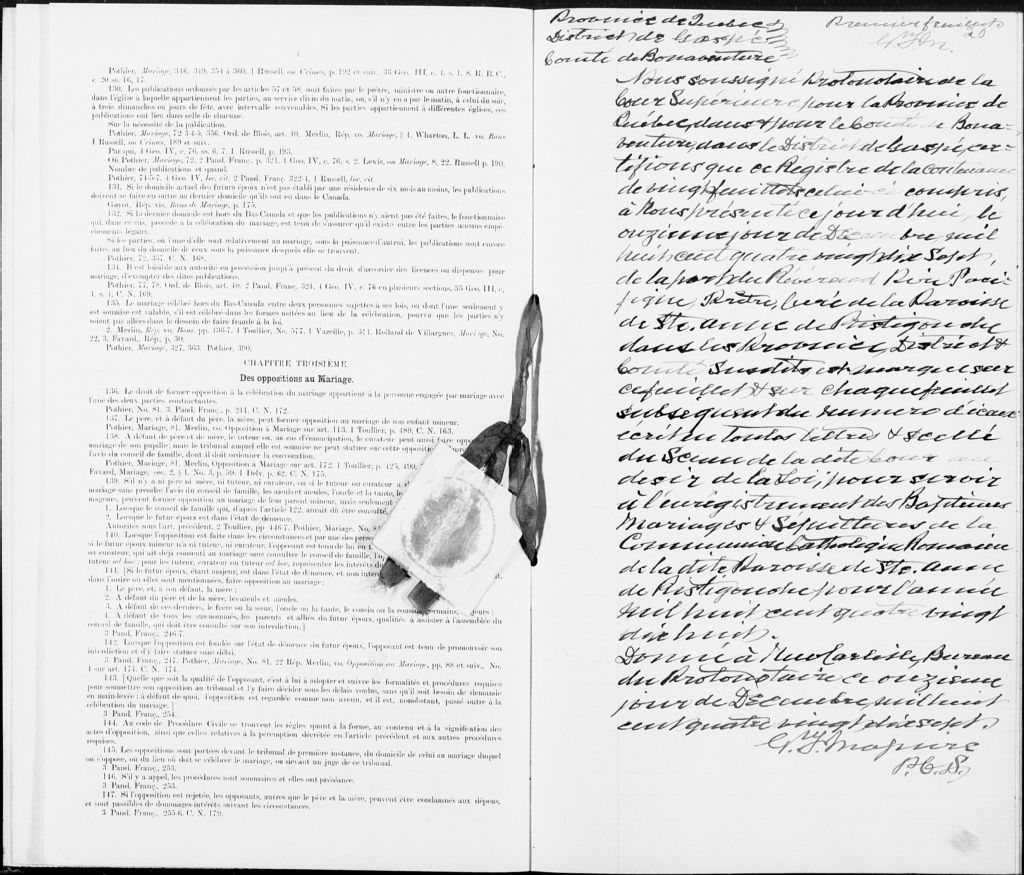 4
Pothier, Mariage, 346, 349, 354 à 360. 1 Russell, on Crimes, p. 192 et suiv. 36 Geo. III, c. 4, s. 4, S. R. B. C.,
c. 20 ss. 16, 17.
130. Les publications ordonnées par les articles 57 et 58, sont faites par le prêtre, ministre ou autre fonctionnaire,
dans l'église à laquelle appartiennent les parties, au service divin du matin, ou, s'il n'y en a pas le matin, à celui du soir,
à trois dimanches ou jours de fête, avec intervalle convenables. Si les parties appartiennent à différentes églises, ces
publications ont lieu dans celle de chacune.
Sur la nécessité de la publication.
Pothier, Mariage, 72 3-4-5, 356, Ord. de Blois, art. 40. Merlin, Rép. vo. Mariage, § 4. Wharton, L. L. vo. Bans
1 Russell, on Crimes, 189 et suiv.
Par qui, 4 Geo. IV, c. 76, ss. 6. 7. 1 Russell, p. 193.
Où Pothier, Mariage, 72. 2 Pand. Franç. p. 321. 4 Geo. IV, c. 76, s. 2. Lewis, on Mariage, 8, 22. Russell p. 190.
Nombre de publications et quand.
Pothier, 74-5-7. 4 Geo. IV, loc. cit. 2 Pand. Franç. 322-4, 1 Russell, loc. cit.
131. Si le domicile actuel des futurs époux n'est pas établi par une résidence de six mois au moins, les publications
doivent se faire en outre au dernier domicile qu'ils ont eu dans le Canada.
Guyot, Rép. vis. Bans de Mariage, p. 175.
132. Si le dernier domicile est hors du Bas-Canada et que les publications n'y aient pas été faites, le fonctionnaire
qui, dans ce cas, procède à la célébration du mariage, est tenu de s'assurer qu'il existe entre les parties aucuns empê-
chements légaux.
Si les parties, ou l'une d'elle sont relativement au mariage, sous la puissance d'autrui, les publications sont encore
faites au lieu du domicile de ceux sous la puissance desquels elle se trouvent.
Pothier, 72, 357. C. N. 168.
134. Il est loisible aux autorité en possession jusqu'à présent du droit d'accorder des licences ou dispenses pour
mariage, d'exempter des dites publications.
Pothier, 77, 78. Ord. de Blois, art. 40. 2 Pand. Franç. 324. 4 Geo. IV, c. 76 en plusieurs sections, 35 Geo. III, c.
4, s. 4, C. N. 169.
135. Le mariage célébré hors du Bas-Canada entre deux personnes sujettes à ses lois, ou dont l'une seulement y
est soumise est valable, s'il est célébré dans les formes usitées au lieu de la célébration, pourvu que les parties n'y
soient pas allées dans le dessein de faire fraude à la loi.
2, Merlin, Rép. vo. Bans, pp. 436-7. 1 Toullier, No. 577. 1 Vazeille, p. 514, Rolland de Villargues, Mariage, No.
22, 3. Favard, Rép., p. 39.
Pothier, Mariage, 327, 363. Pothier, 390.
CHAPITRE TROISIÈME.
Des oppositions au Mariage.
136. Le droit de former opposition à la célébration du mariage appartient à la personne engagée par mariage avec
l'une des deux parties contractantes.
Pothier, No. 81. 3. Pand. Franç., p. 241. C. N. 172.
137. Le père, et à défaut du père, la mère, peut former opposition au mariage de son enfant mineur.
Pothier, Mariage, 81. Merlin, vo. Opposition à Mariage sur art. 113, 1 Toullier, p. 489. C. N. 163.
138. A défaut de père et de mère, le tuteur ou, au cas d'émancipation, le curateur peut aussi faire oppo
mariage de son pupille; mais le tribunal auquel elle est soumise ne peut statuer sur cette opposition
l'avis du conseil de famille, dont il doit ordonner la convocation.
Pothier, Mariage, 81. Merlin, Opposition à Mariage sur art. 172. 1 Toullier, p. 425, 490,
Favard, Mariage, sec. 2, § 1, No. 3, p. 59. 1 Delv. p. 62. C. N. 175.
139. S'il n'y a père ni mère, ni tuteur, ni curateur, ou si le tuteur ou curateur a
mariage sans prendre l'avis du conseil de famille, les aïeuls et aïeules, l'oncle et la tante, le
mageurs, peuvent former opposition au mariage de leur parent mineur, mais seulement
1. Lorsque le conseil de famille qui, d'après l'article 122, aurait dû être consulté,
2. Lorsque le futur époux est dans l'état de démence.
Autorités sous l'art. précédent. 2 Toullier, pp. 446-7. Pothier, Mariage, No. 81
140. Lorsque l'opposition est faite dans les circonstances et par une des perso
si le futur époux mineur n'a ni tuteur, ni curateur, l'opposant est tenu de lui en f
ou curateur, qui ait déjà consenti au mariage sans consulter le conseil de famille, l'o
tuteur ad hoc; pour les tuteur, curateur ou tuteur ad hoc, représenter les intérêts du
141. [Si le futur époux, étant majeur, est dans l'état de démence, et non inter
dans l'ordre où elles sont mentionnées, faire opposition au mariage:
1. Le père, et, à son défaut, la mère;
2. A défaut du père et de la mère, les aïeuls et aïeules,
3. A défaut de ces derniers, le frère ou la sœur, l'oncle ou la tante, le cousin ou la cousine germains, jeurs;
4. A défaut de tous les sus-nommés, les parents et alliés du futur époux, qualifiés à assister à l'assemblée du
conseil de famille, qui doit être consulté sur son interdiction.]
3 Pand. Franç., 246-7.
142. Lorsque l'opposition est fondée sur l'état de démence du futur époux, l'opposant est tenu de promouvoir son
interdiction et d'y faire statuer sans délai.
3 Pand. Franç., 247. Pothier, Mariage, No. 81. 22 Rép. Merlin, vo. Opposition au Mariage, pp. 88 et suiv., No.
4 sur art. 174. C. N. 174.
143. [Quelle que soit la qualité de l'opposant, c'est à lui à adopter et suivre les formalités et procédures requises
pour soumettre son opposition au tribunal et l'y faire décider sous les délais voulus, sans qu'il soit besoin de demande
en main-levée; à défaut de quoi, l'opposition est regardée comme non avenu, et il est, nonobstant, passé outre à la
célébration du mariage.]
3 Pand. Franç., 254.
144. Au code de Procédure Civile se trouvent les règles quant à la forme, au contenu et à la signification des
actes d'opposition, ainsi que celles relatives à la péremption décrétée en l'article précédent et aux autres procédures
requises.
145. Les oppositions sont portées devant le tribunal de première instance, du domicile de celui au mariage duquel
on s'oppose, ou du lieu où doit se célébrer le mariage, ou devant un juge de ce tribunal.
3 Pand. Franç., 253.
146. S'il y a appel, les procédures sont sommaires et elles ont préséance.
3 Pand. Franç., 253.
147. Si l'opposition est rejetée, les opposants, autres que le père et la mère, peuvent être condamnés aux dépens,
et sont passibles de dommages-intérêts suivant les circonstances.
3 Pand. Franç., 255-6. C. N. 179.
Province de Quebec
District de Gaspé
Comté de Bonaventure
Premier feuillet
20
Nous soussigné Protonotaire de la
Cour Supérieure pour la Province de
Québec, dans & pour le Comté de Bona-
venture, dans le District de Gaspé cer-
tifions que ce Régistre de la Contenance
de vingt feuillets celui-ci compris,
à Nous présenté ce jour d'hui, le
onzième jour de Décembre mil
huit cent quatre vingt dix Sept,
de la part du Révérend Père Paci-
fique, Prêtre, Curé de la Paroisse
de Ste. Anne de Ristigouche
dans les Province, District &
Comté Susdits est marqué sur
ce feuillet & sur chaque feuillet
subséquent du numero d'iceux
écrit en toutes lettres & scellé
du Sceau de la dite Cour au
desir de la Loi, pour servir
à l'enrégistrement des Baptêmes
Mariages & Sepultures de la
Communion Catholique Romaine
de la dite Paroisse de Ste. Anne
de Ristigouche pour l'année
mil huit cent quatre vingt
dix huit.
Donné à New Carlisle, Bureau
du Protonotaire ce onzieme
jour de Décembre, mil huit
cent quatre vingt dix sept.
G. J. Maguire
P. C. S.